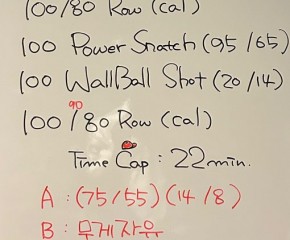 100/80 Row (cal)
100 Power Snatch (95/65)
100 WallBall Shot (20/14)
90
100/80 Row (cal)
Time Cap : 22min.
A : (75/55) (14/8)
B : 무게자유